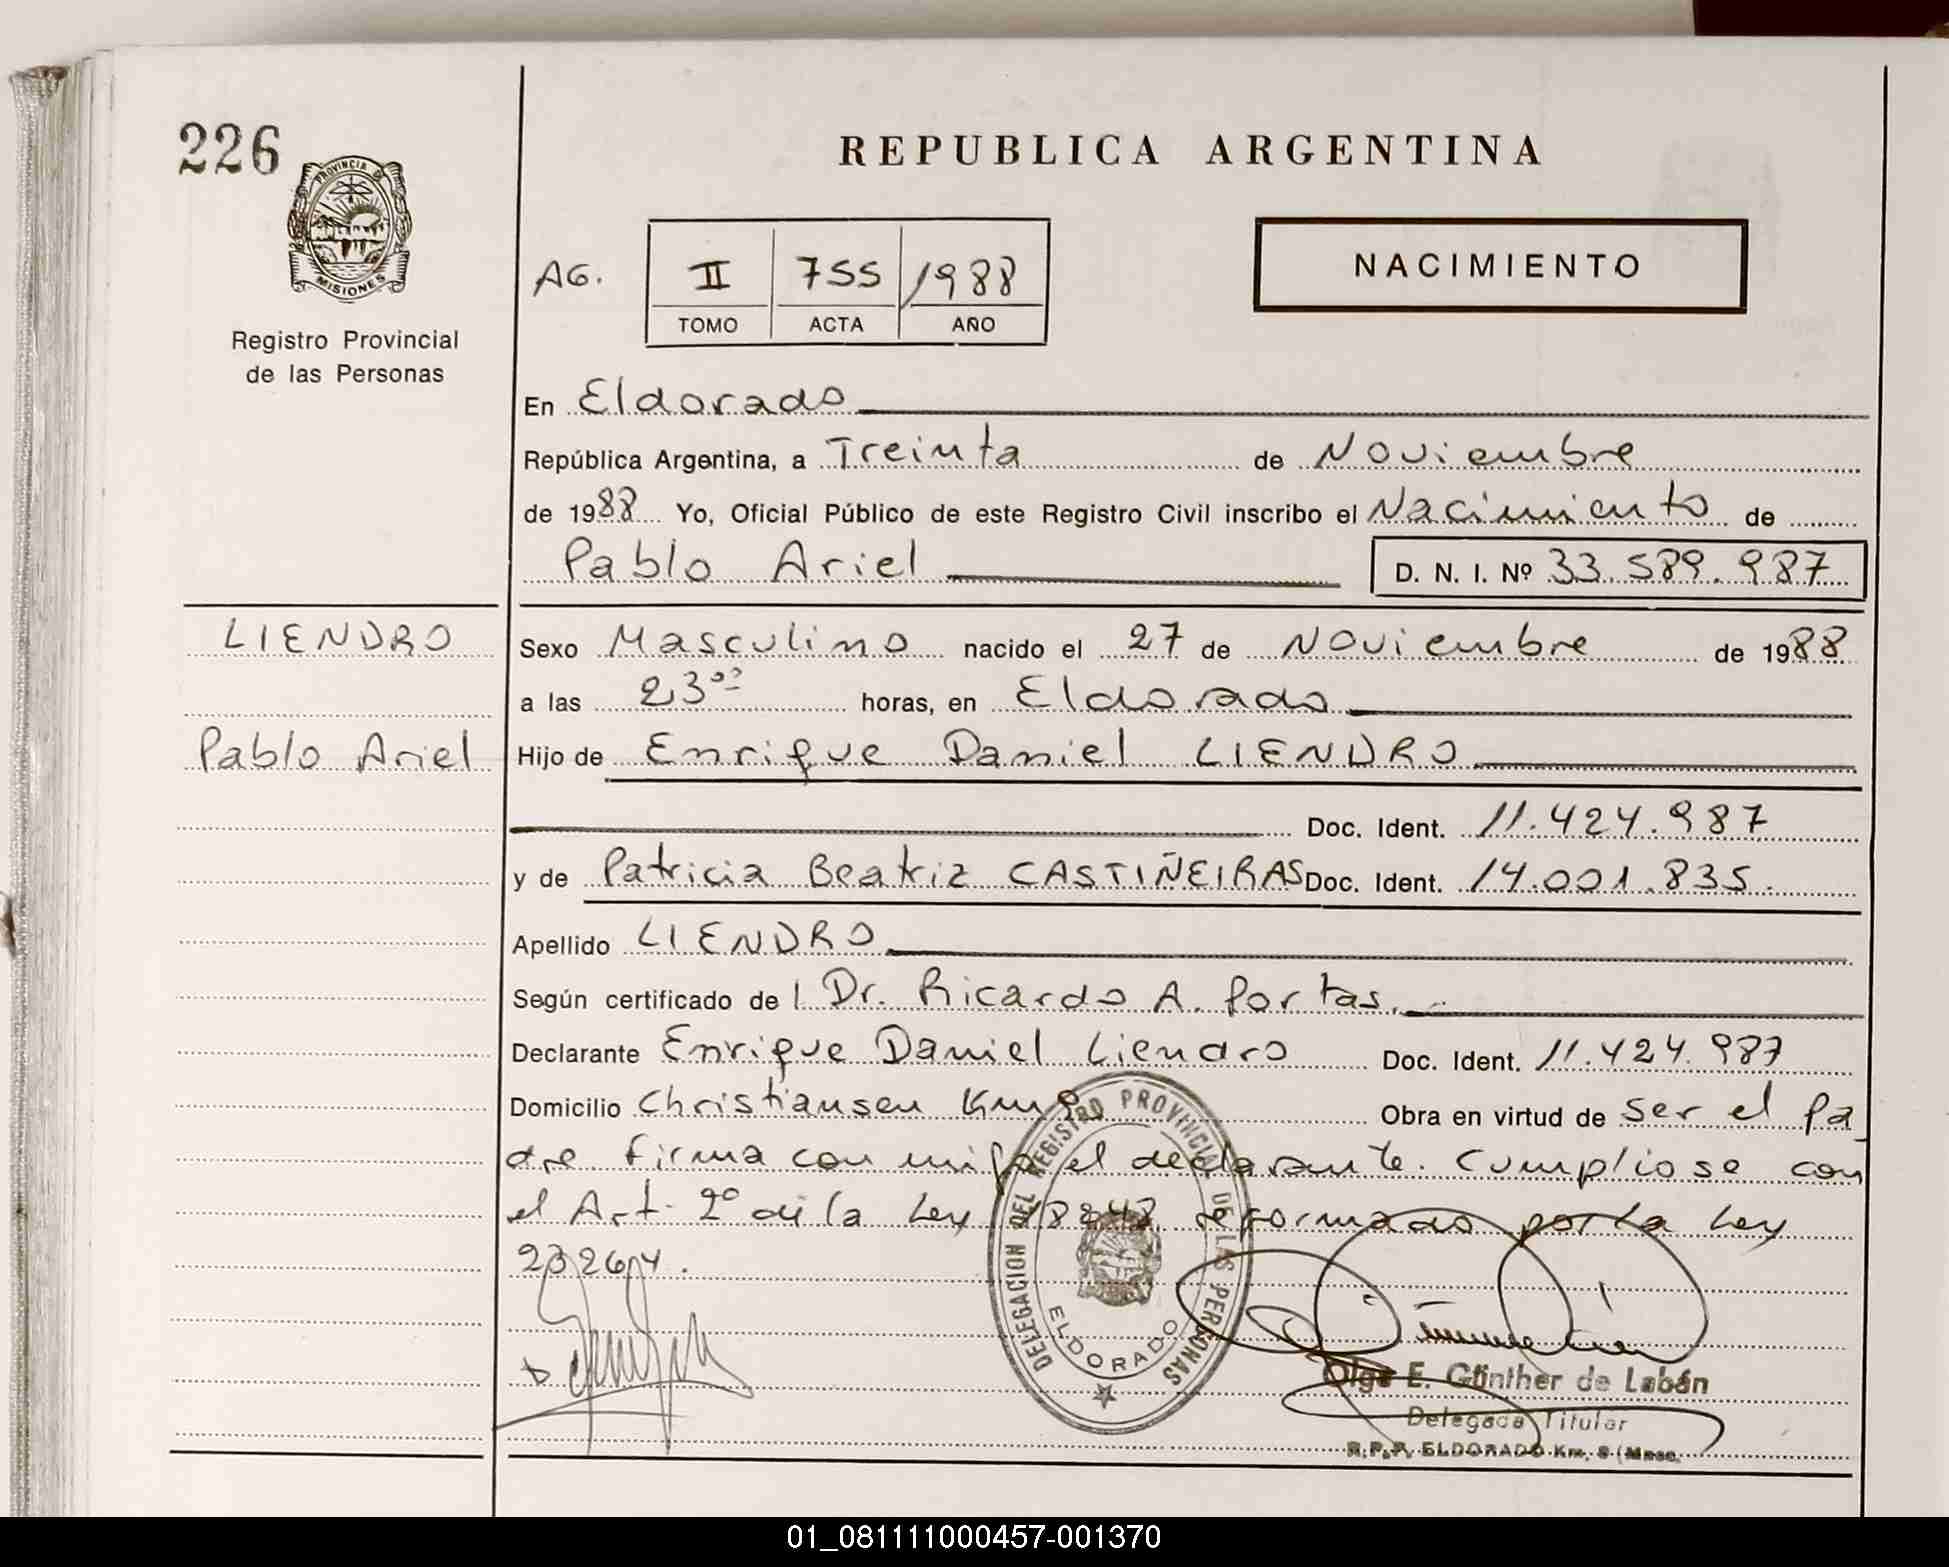 226
PROVINCIA DE
MISIONES
Registro Provincial
de las Personas
REPUBLICA ARGENTINA
AG.
II 755 1988
TOMO ACTA AÑO
NACIMIENTO
En Eldorado
República Argentina, a Treinta de Noviembre
de 1988 Yo, Oficial Público de este Registro Civil inscribo el Nacimiento de
Pablo Ariel D. N. I. Nº 33.589.987
LIENDRO
Pablo Ariel
Sexo Masculino nacido el 27 de Noviembre de 1988
a las 23 horas, en Eldorado
Hijo de Enrique Daniel LIENDRO
Doc. Ident. 11.424.987
y de Patricia Beatriz CASTIÑEIRAS Doc. Ident. 14.001.835.
Apellido LIENDRO
Según certificado de l Dr. Ricardo A. Portas.
Declarante Enrique Daniel Liendro Doc. Ident. 11.424.987
Domicilio Christiansen Km Obra en virtud de ser el Pa
dre firma con migo el declarante. Cumpliose con
el Art. 2º de la Ley 18248 reformado por la Ley
23264.
DELEGACION DEL REGISTRO PROVINCIAL DE LAS PERSONAS
ELDORADO
Olga E. Günther de Labán
Delegada Titular
R.P.P. ELDORADO Km. 8 (Mnes.
01_081111000457-001370